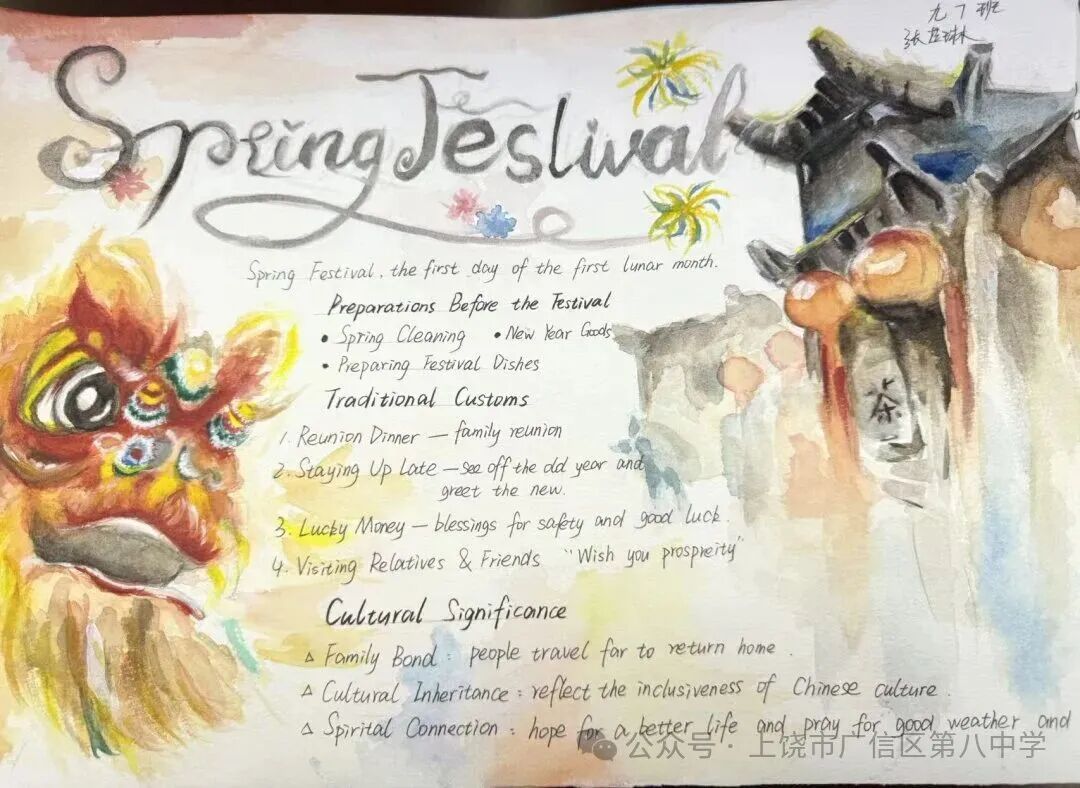 九7班
张 琳
Spring Festival
Spring Festival, the first day of the first lunar month.
Preparations Before the Festival
• Spring Cleaning • New Year Goods
• Preparing Festival Dishes
Traditional Customs
1. Reunion Dinner — family reunion
2. Staying Up Late — see off the old year and
greet the new.
3. Lucky Money — blessings for safety and good luck.
4. Visiting Relatives & Friends "Wish you prospreity"
茶
Cultural Significance
△ Family Bond: people travel far to return home.
△ Cultural Inheritance: reflect the inclusiveness of Chinese culture.
△ Spirital Connection: hope for a better life and pray for good weather and
公众号·上饶市广信区第八中学